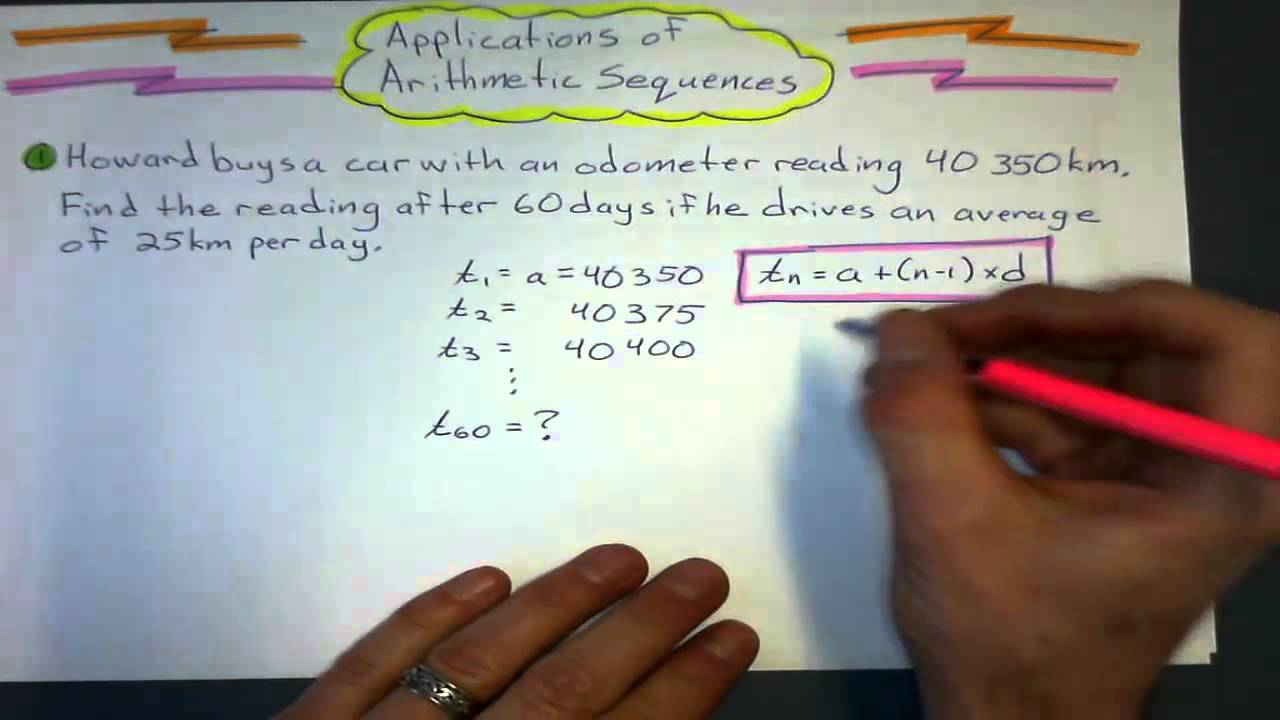 Applications of
Arithmetic Sequences
1 Howard buys a car with an odometer reading 40 350km.
Find the reading after 60 days if he drives an average
of 25km per day.
t₁ = a = 40350
tn = a + (n-1) × d
t₂ = 40375
t₃ = 40400
⋮
t₆₀ = ?